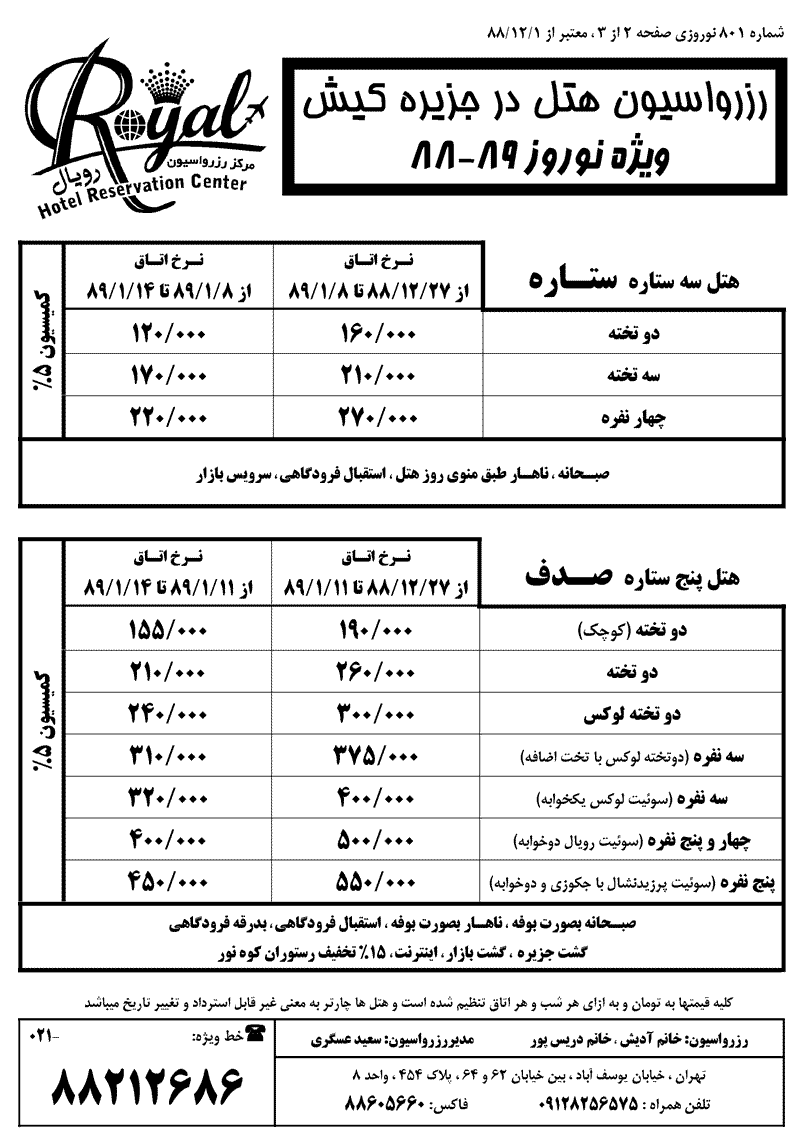 شماره ۸۰۱ نوروزی صفحه ۲ از ۳ ، معتبر از ۸۸/۱۲/۱
Royal
مرکز رزرواسیون
رویال
Hotel Reservation Center
رزرواسیون هتل در جزیره کیش
ویژه نوروز ۸۹-۸۸
هتل سه ستاره ستـــاره
نــرخ اتــاق
از ۸۸/۱۲/۲۷ تا ۸۹/۱/۸
نــرخ اتــاق
از ۸۹/۱/۸ تا ۸۹/۱/۱۴
کمیسیون ۵٪
دو تخته ۱۶۰/۰۰۰ ۱۲۰/۰۰۰
سه تخته ۲۱۰/۰۰۰ ۱۷۰/۰۰۰
چهار نفره ۲۷۰/۰۰۰ ۲۲۰/۰۰۰
صبــحانه ، ناهــار طبق منوی روز هتل ، استقبال فرودگاهی ، سرویس بازار
هتل پنج ستاره صــدف
نــرخ اتــاق
از ۸۸/۱۲/۲۷ تا ۸۹/۱/۱۱
نــرخ اتــاق
از ۸۹/۱/۱۱ تا ۸۹/۱/۱۴
کمیسیون ۵٪
دو تخته (کوچک) ۱۹۰/۰۰۰ ۱۵۵/۰۰۰
دو تخته ۲۶۰/۰۰۰ ۲۱۰/۰۰۰
دو تخته لوکس ۳۰۰/۰۰۰ ۲۴۰/۰۰۰
سه نفره (دوتخته لوکس با تخت اضافه) ۳۷۵/۰۰۰ ۳۱۰/۰۰۰
سه نفره (سوئیت لوکس یکخوابه) ۴۰۰/۰۰۰ ۳۲۰/۰۰۰
چهار و پنج نفره (سوئیت رویال دوخوابه) ۵۰۰/۰۰۰ ۴۰۰/۰۰۰
پنج نفره (سوئیت پرزیدنشال با جکوزی و دوخوابه) ۵۵۰/۰۰۰ ۴۵۰/۰۰۰
صبــحانه بصورت بوفه ، ناهــار بصورت بوفه ، استقبال فرودگاهی ، بدرقه فرودگاهی
گشت جزیره ، گشت بازار ، اینترنت، ۱۵٪ تخفیف رستوران کوه نور
کلیه قیمتها به تومان و به ازای هر شب و هر اتاق تنظیم شده است و هتل ها چارتر به معنی غیر قابل استرداد و تغییر تاریخ میباشد
رزرواسیون: خانم آدیش ، خانم دریس پور
مدیررزرواسیون: سعید عسگری
تهران ، خیابان یوسف آباد ، بین خیابان ۶۲ و ۶۴ ، پلاک ۴۵۴ ، واحد ۸
تلفن همراه : ۰۹۱۲۸۲۵۶۵۷۵ فاکس: ۸۸۶۰۵۶۶۰
خط ویژه: ۰۲۱-
۸۸۲۱۲۶۸۶